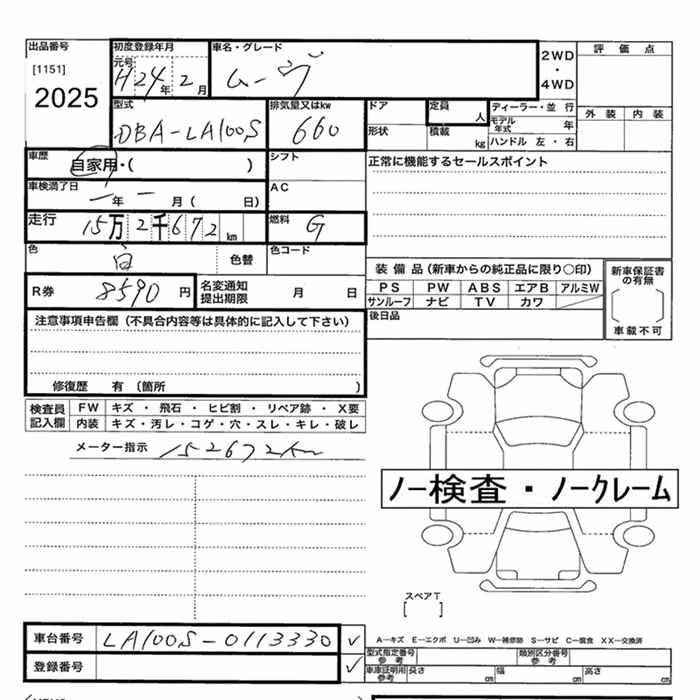 出品番号 初度登録年月 車名・グレード 2WD・4WD 評価点
[1151] 元号 H24年2月 ムーヴ
2025 型式 排気量又はkw ドア 定員 人 ディーラー・並行 外装 内装
DBA-LA100S 660 形状 積載 kg モデル年式 年
ハンドル 左・右
車歴 自家用・( ) シフト 正常に機能するセールスポイント
車検満了日 ー年ー月( 日) AC
走行 15万2千672km 燃料 G
色 白 色替 色コード
装備品(新車からの純正品に限り○印) 新車保証書の有無
R券 8590円 名変通知提出期限 月 日 PS PW ABS エアB アルミW
サンルーフ ナビ TV カワ
注意事項申告欄(不具合内容等は具体的に記入して下さい) 後日品 車載不可
修復歴 有 〔箇所 )
検査員記入欄 FW キズ・飛石・ヒビ割・リペア跡・X要
内装 キズ・汚レ・コゲ・穴・スレ・キレ・破レ
メーター指示 152672km
ノー検査・ノークレーム
スペアT
[ ]
車台番号 LA100S-0113330 ✓ A―キズ E―エクボ U―凹み W―補修跡 S―サビ C―腐食 XX―交換済
型式指定番号 参考 類別区分番号 参考
登録番号 ✓ 車庫証明用 参考 長さ cm 幅 cm 高さ cm